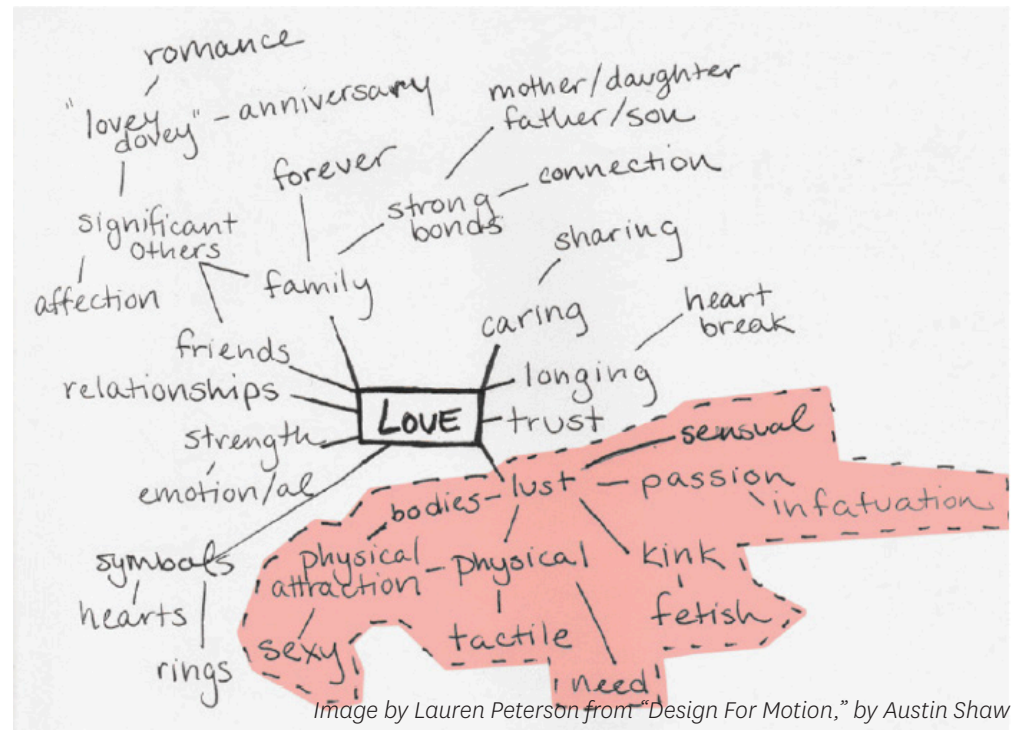 romance
"lovey
dovey" - anniversary
mother/daughter
father/son
forever
connection
strong
bonds
significant
others
sharing
family
affection
caring
heart
break
friends
longing
relationships
LOVE
trust
strength
sensual
emotion/al
lust
passion
bodies
infatuation
symbols
physical
attraction
physical
kink
hearts
fetish
tactile
sexy
rings
need
Image by Lauren Peterson from “Design For Motion,” by Austin Shaw